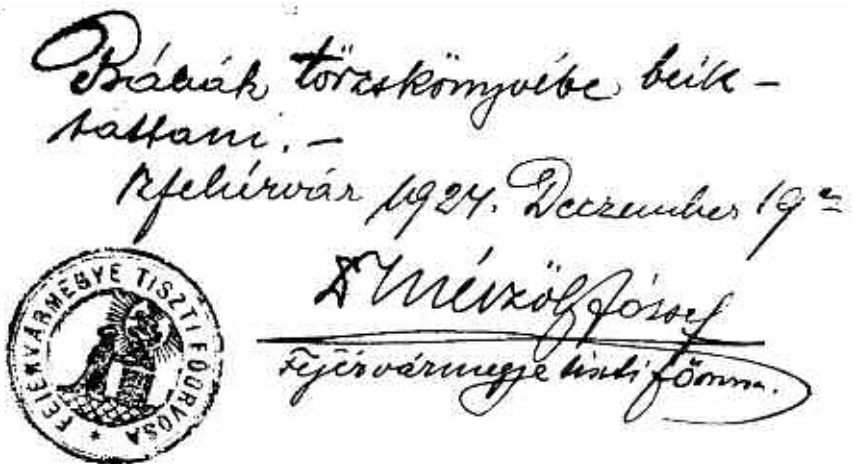 Bábák törzskönyvébe beik-
tattani. –
Szfehérvár 1924. Deczember 19én
Dr József
Fejérvármegye tiszti főorvosa.
FEJÉRVÁRMEGYE TISZTI FŐORVOSA *